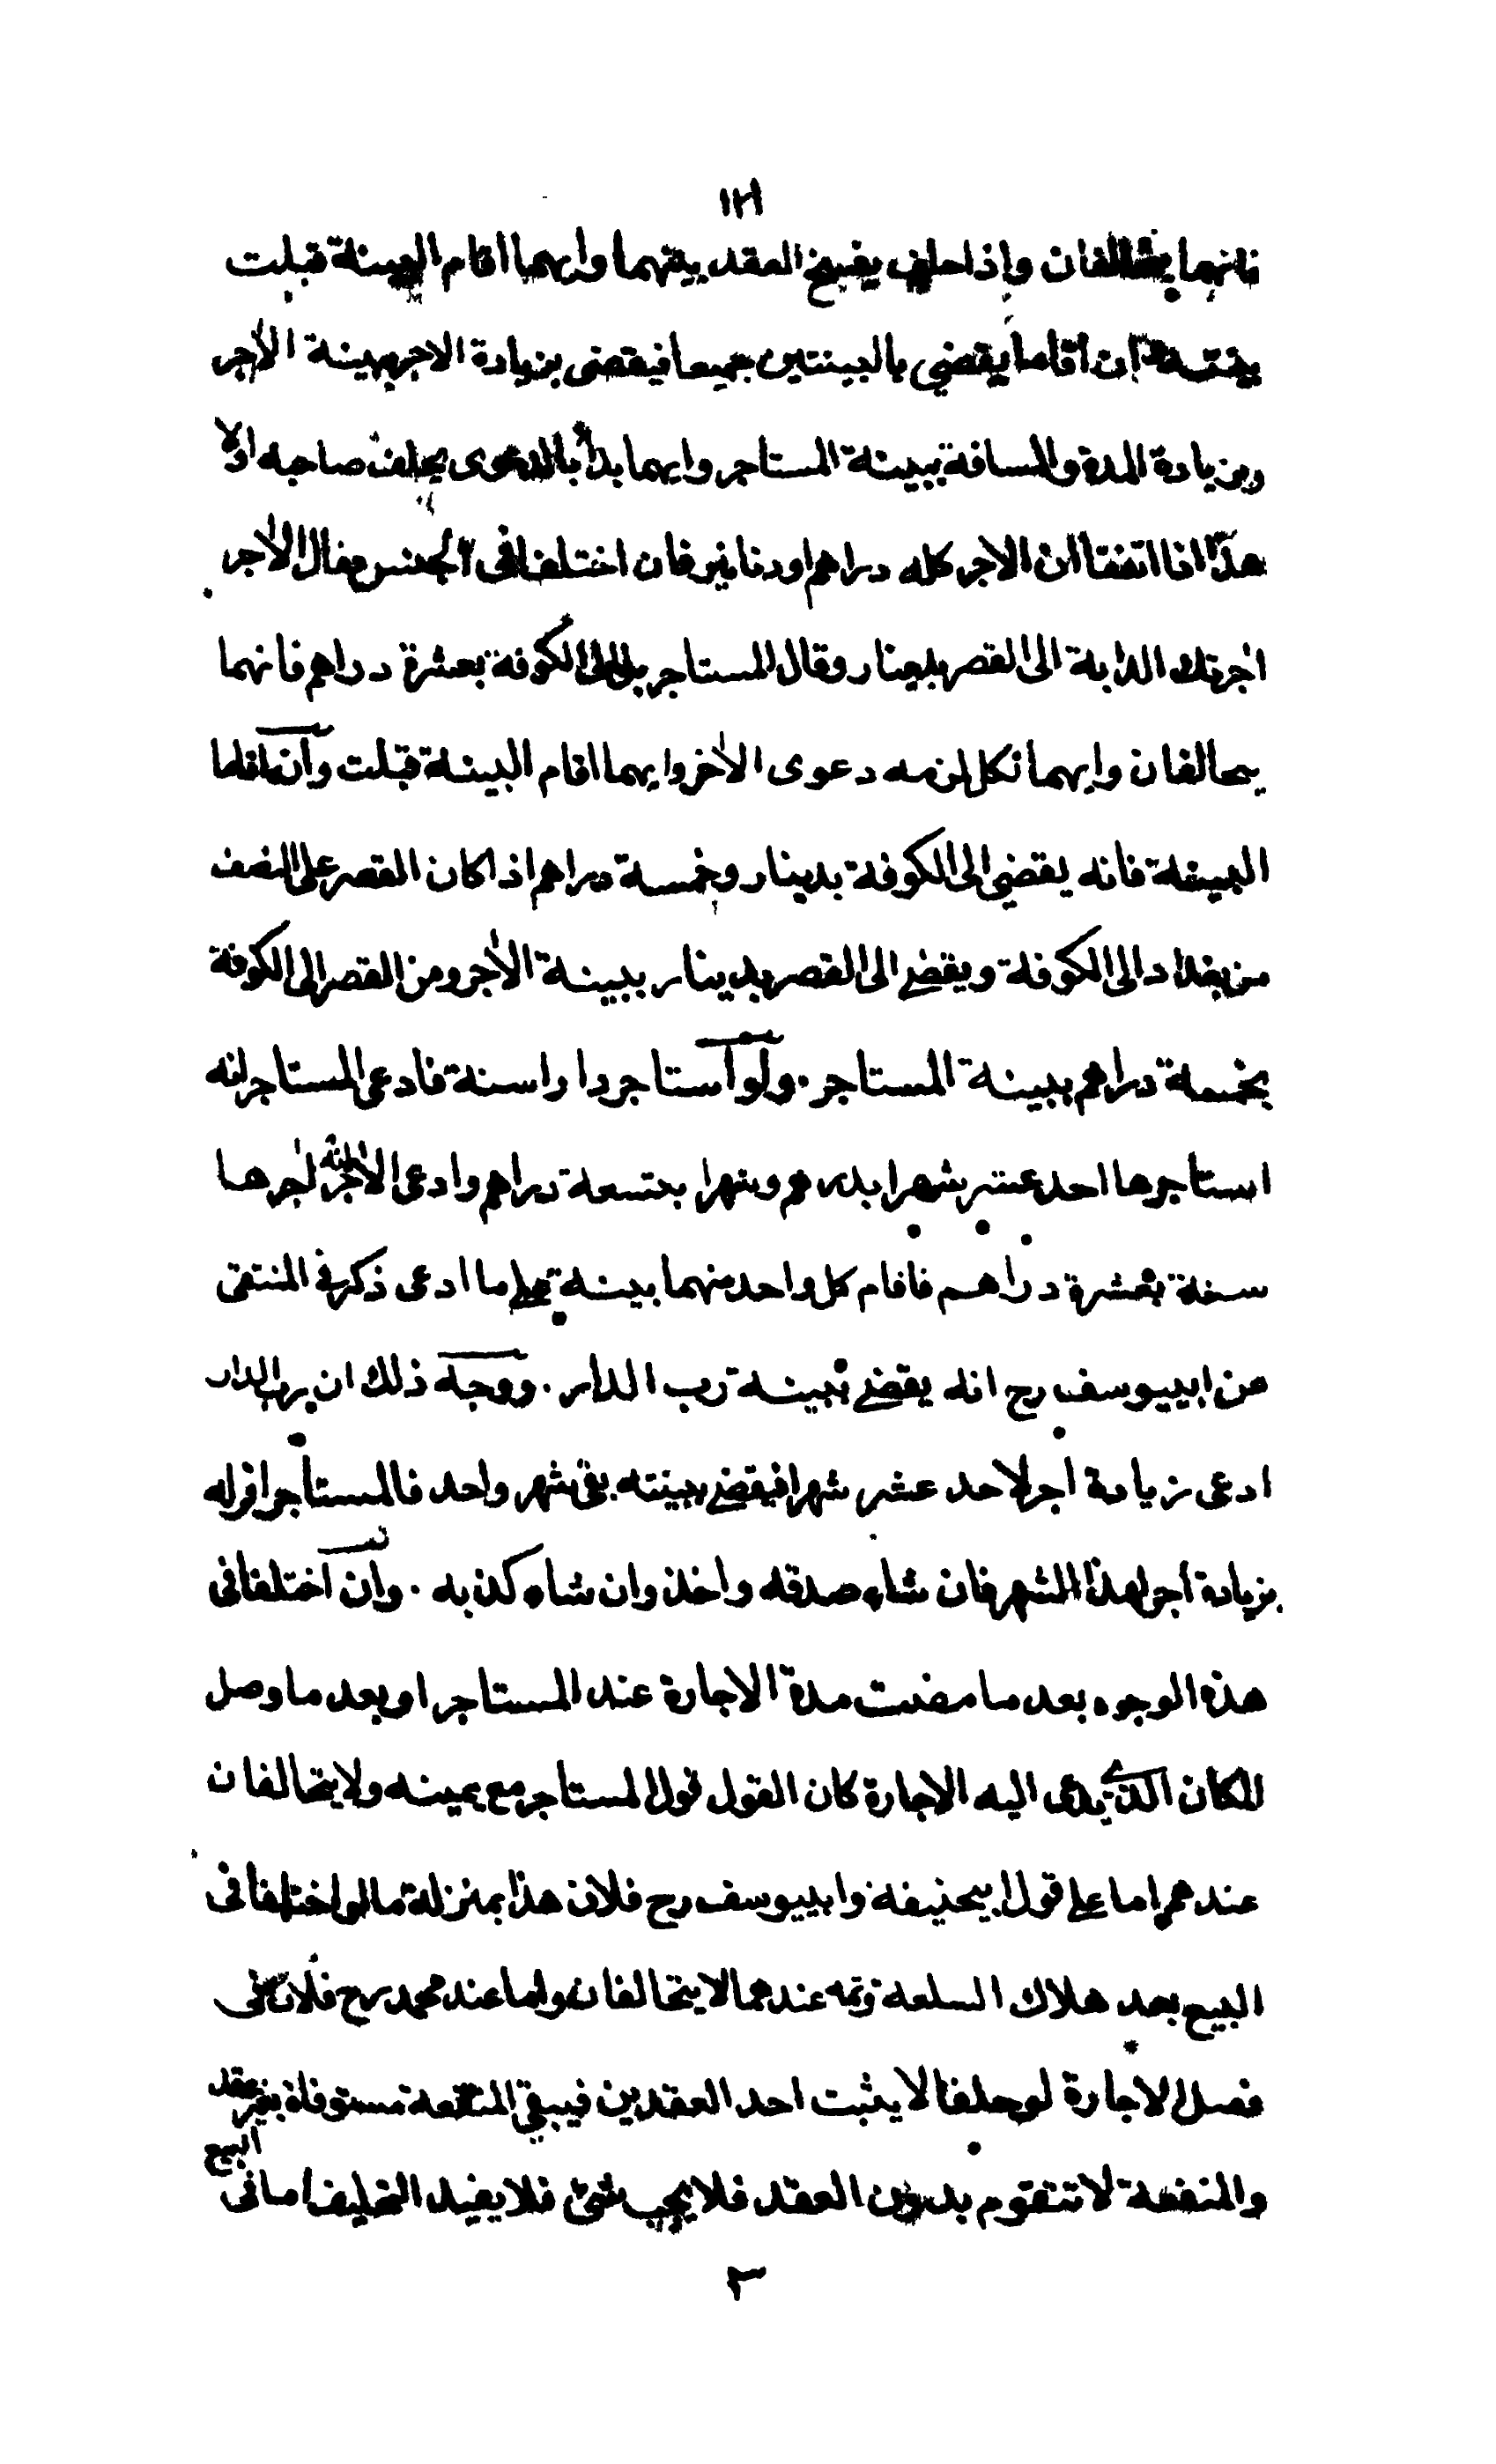 ١٢١
فانهما يتحالفان واذا حلف يفسخ العقد بينهما وايهما اقام البينة قبلت
بينته وان اقاما يقضي بالبينتين جميعا فيقضى بزيادة الاجر ببينة الآجر
وبزيادة المدة والمسافة ببينة المستاجر وايهما بدأ بالدعوى يحلف صاحبه اولا
هذا اذا اتفقا ان الاجر كله دراهم اودنانير فان اختلفا فى الجنس فقال الآجر
اجرتك الدابة الى القصر بدينار وقال المستاجر بل الى الكوفة بعشرة دراهم فانهما
يتحالفان وايهما نكل لزمه دعوى الآخر وايهما اقام البينة قبلت وان اقاما
البينة فانه يقضي الى الكوفة بدينار وخمسة دراهم اذا كان القصر على النصف
من بغداد الى الكوفة ويقضے الى القصر بدينار ببينة الآجر ومن القصر الى الكوفة
بخمسة دراهم ببينة المستاجر . ولو استاجر دارا سنة فادعى المستاجر انه
استاجرها احد عشر شهرا بدرهم وشهرا بتسعة دراهم وادعى الآجر انه اجرها
سنة بعشرة دراهم فاقام كل واحد منهما بينة على ما ادعى ذكر فى المنتقى
عن ابييوسف رح انه يقضے ببينة رب الدار . ووجه ذلك ان رب الدار
ادعى زيادة اجر لاحد عشر شهرا فيقضے ببينته بقى شهر واحد فالمستأجر اقر له
بزيادة اجر لهذا الشهر فان شاء صدقه واخذ وان شاء كذبه . وان اختلفا فى
هذه الوجوه بعد ما مضت مدة الاجارة عند المستاجر او بعد ما وصل
المكان الذي يدعى اليه الاجارة كان القول قول المستاجر مع يمينه ولا يتحالفان
عندهم اما على قول ابيحنيفة وابييوسف رح فلان هذا بمنزلة ما لو اختلفا فى
البيع بعد هلاك السلعة وثمه عندهما لا يتحالفان واما عند محمد رح فلان فى
فصل الاجارة لو حلفا لا يثبت احد العقدين فيبقى المنفعة مستوفاة بغير عقد
والمنفعة لا تتقوم بدون العقد فلا يجب شئ فلا يفيد التحليف اما فى البيع
٣